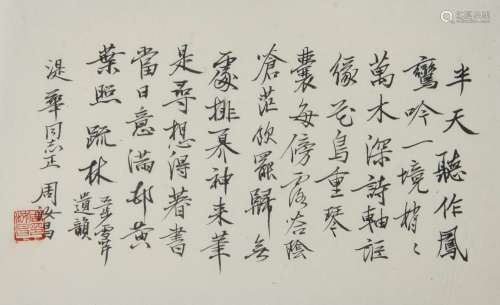 半天聽作鳳
鸞吟一境梢〻
萬木深詩軸誑
緣花鳥重琴
囊每傍露苔陰
蒼茫欲罷歸無
處排神來筆
是尋想得著書
當日意滿邨黃
葉照疏林
雪芹
遺韻
湜華同志正 周汝昌